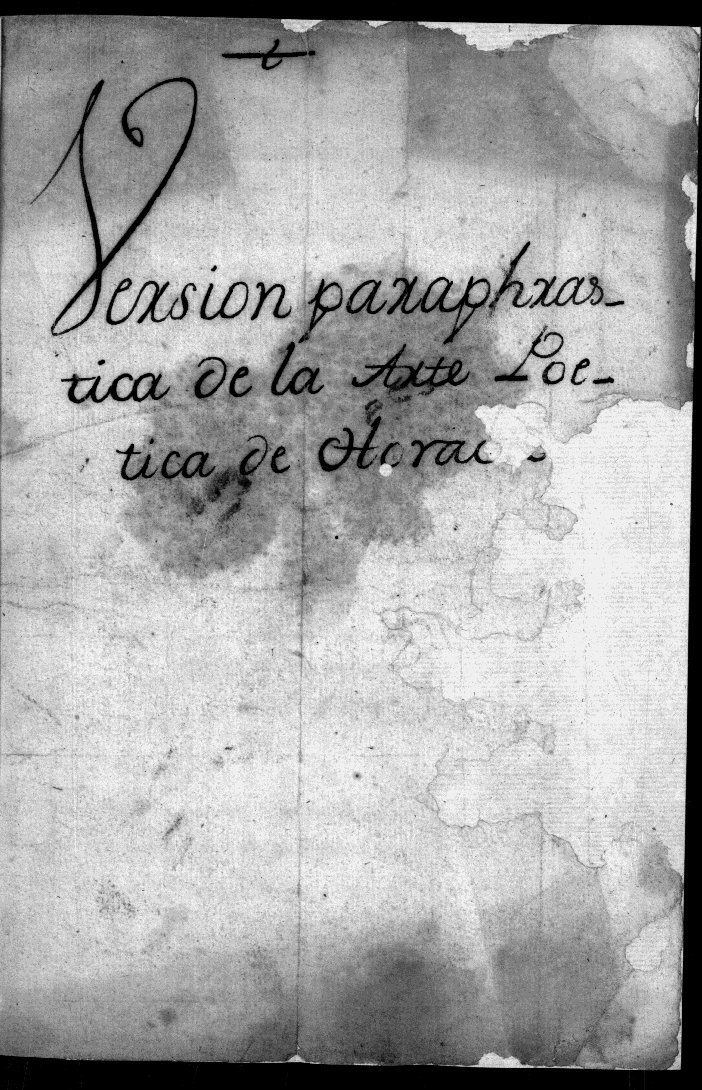 Version paraphras-
tica de la Arte Poe-
tica de